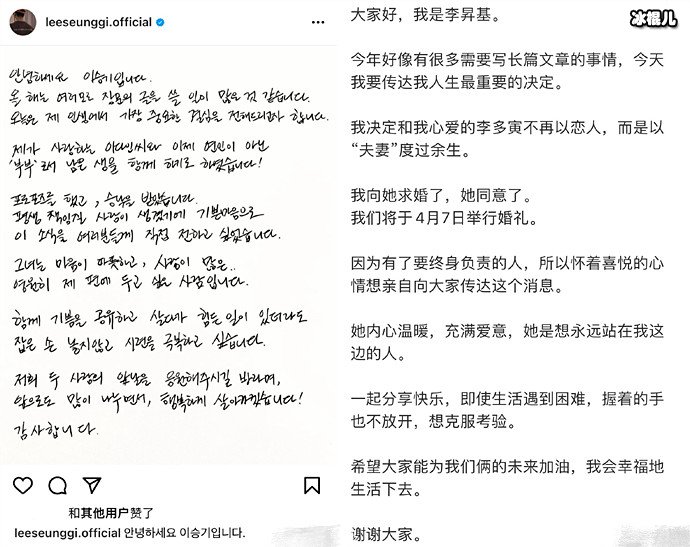 leeseunggi.official
안녕하세요 이승기입니다.
올해는 여러모로 장문의 글을 쓸 일이 많은 것 같습니다.
오늘은 제 인생에서 가장 중요한 결심을 전해드리고자 합니다.
제가 사랑하는 이다인씨와 이제 연인이 아닌
'부부'로서 남은 생을 함께 하기로 하였습니다!
프로포즈를 했고, 승낙을 받았습니다.
평생 책임질 사람이 생겼기에 기쁜마음으로
이 소식을 여러분들께 직접 전하고 싶었습니다.
그녀는 마음이 따뜻하고, 사랑이 많은..
영원히 제 편에 두고 싶은 사람입니다.
함께 기쁨을 공유하고 살다가 힘든 일이 있더라도
잡은 손 놓지않고 시련을 극복하고 싶습니다.
저희 두 사람의 앞날을 응원해주시길 바라며,
앞으로도 많이 나누면서, 행복하게 살아가겠습니다!
감사합니다.
和其他用户赞了
leeseunggi.official 안녕하세요 이승기입니다.
冰棍儿
大家好，我是李昇基。
今年好像有很多需要写长篇文章的事情，今天
我要传达我人生最重要的决定。
我决定和我心爱的李多寅不再以恋人，而是以
“夫妻”度过余生。
我向她求婚了，她同意了。
我们将于4月7日举行婚礼。
因为有了要终身负责的人，所以怀着喜悦的心
情想亲自向大家传达这个消息。
她内心温暖，充满爱意，她是想永远站在我这
边的人。
一起分享快乐，即使生活遇到困难，握着的手
也不放开，想克服考验。
希望大家能为我们俩的未来加油，我会幸福地
生活下去。
谢谢大家。